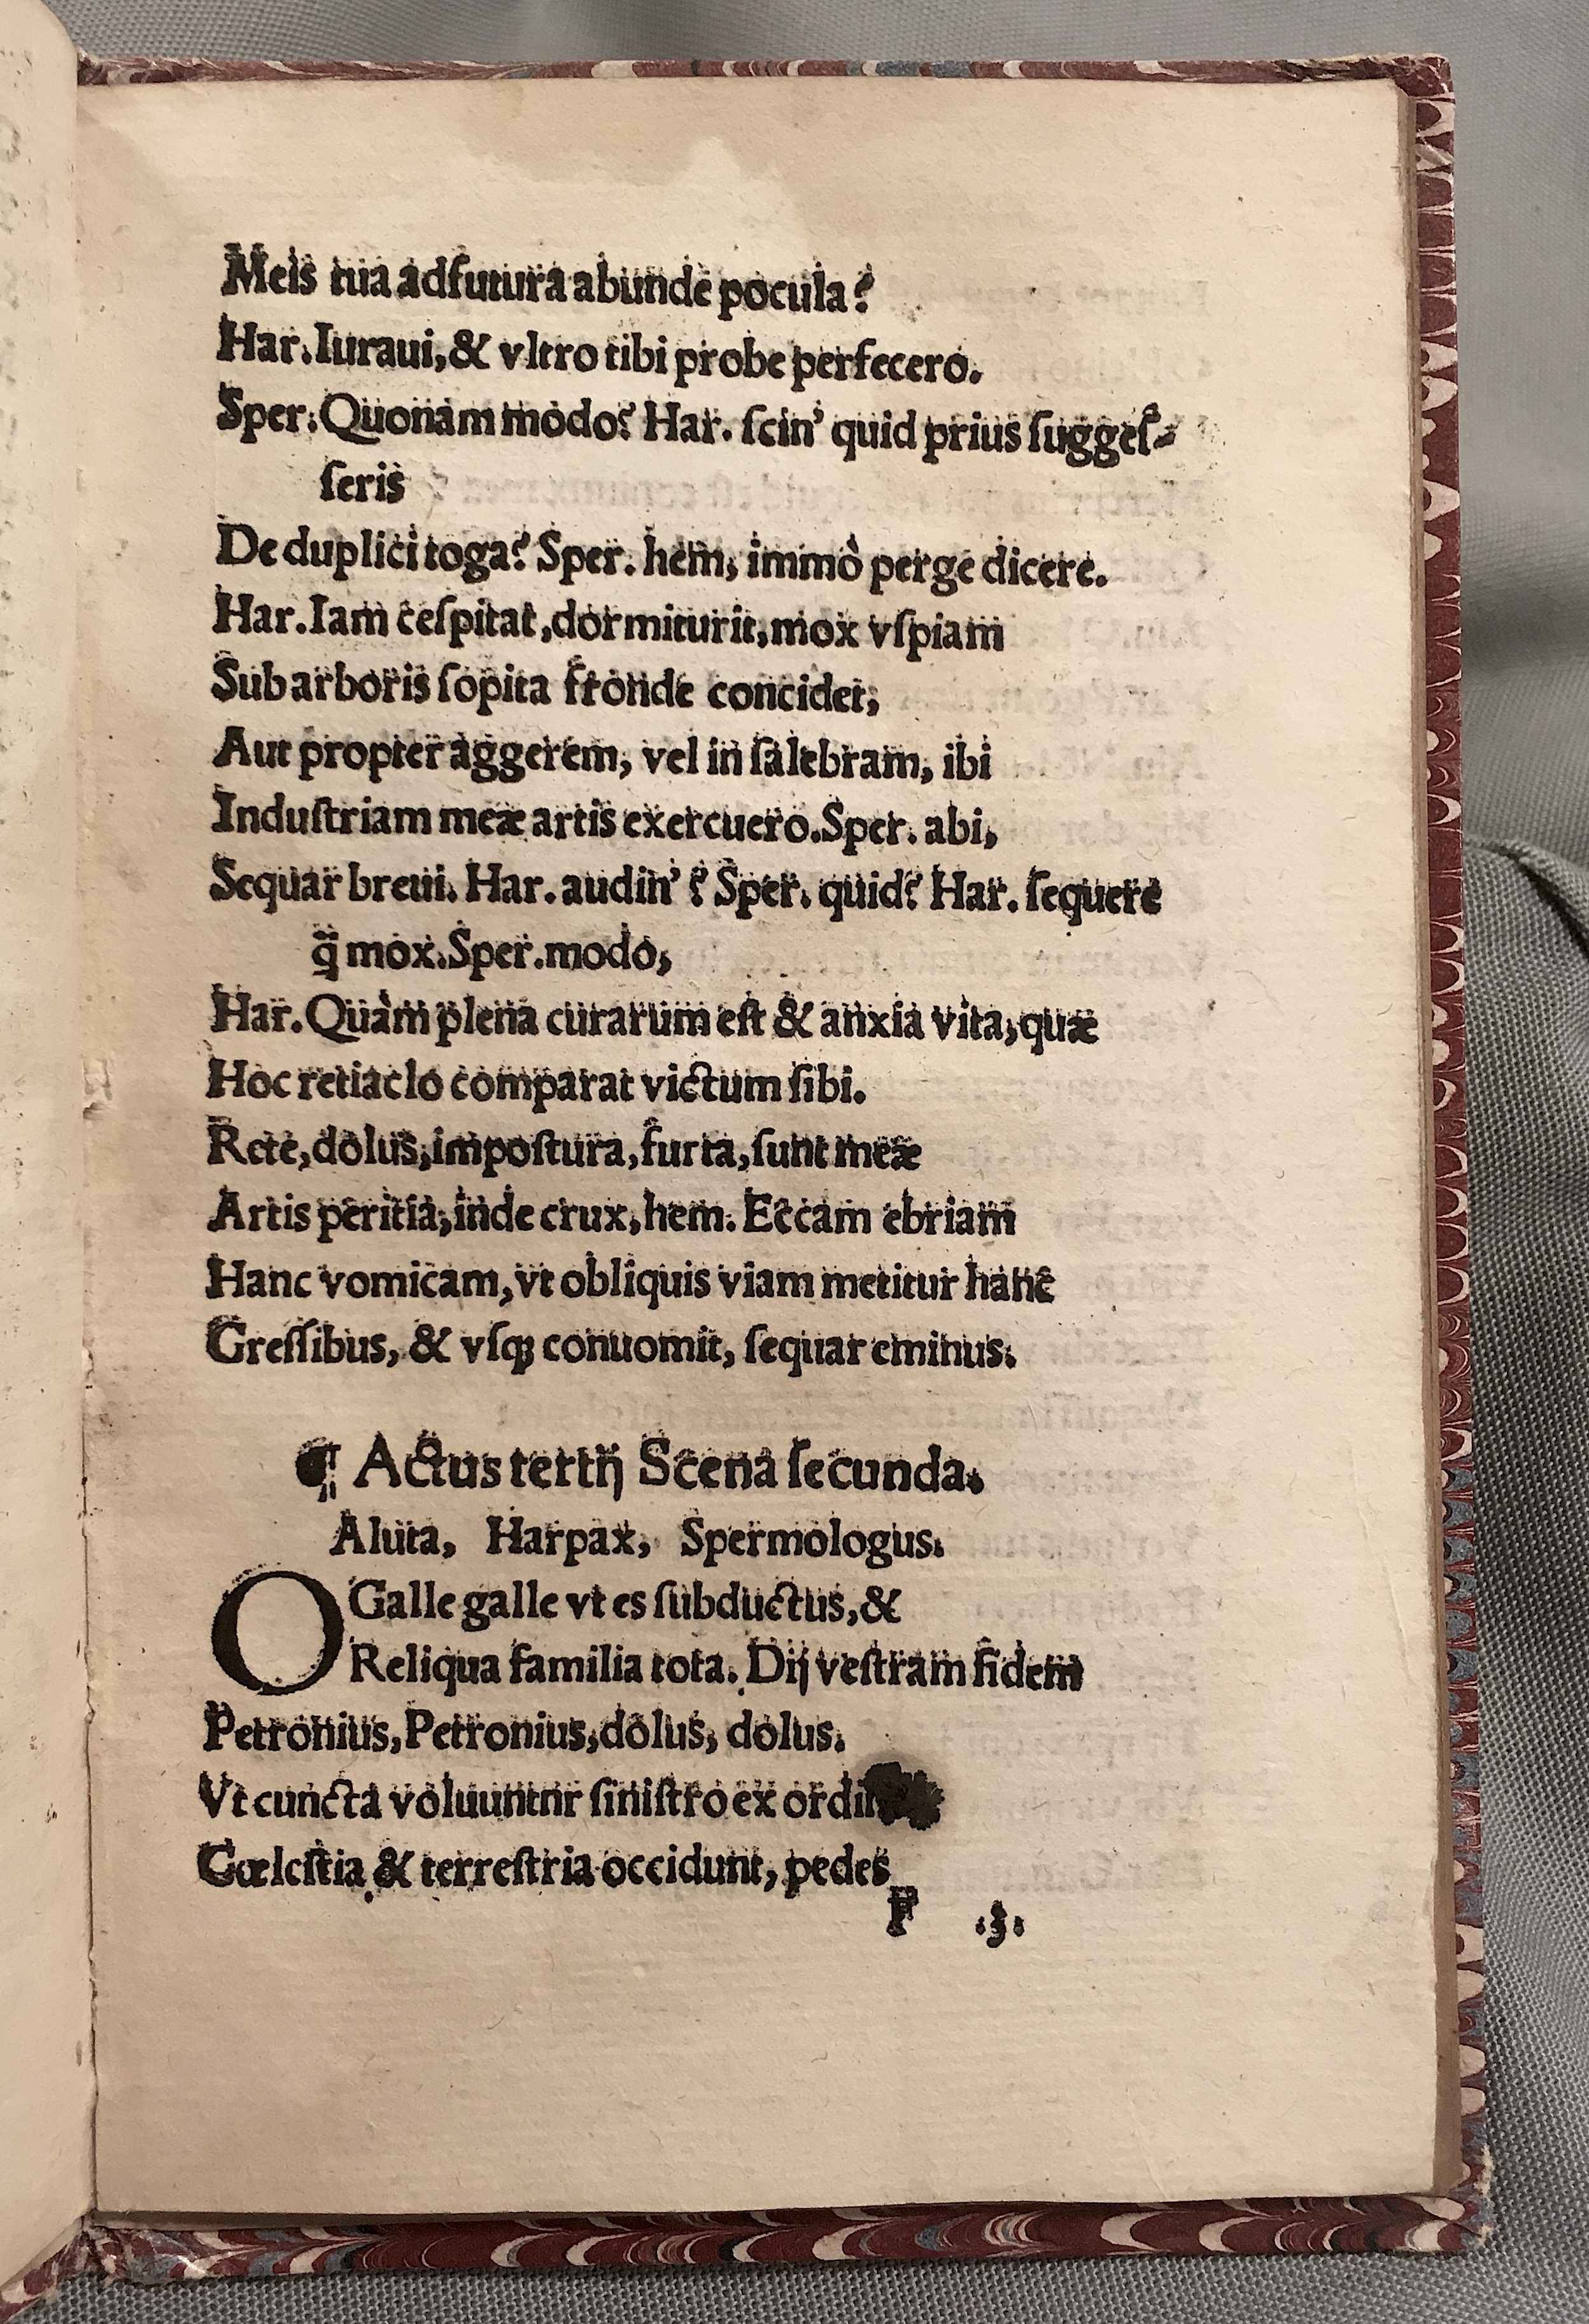 Meis tua adfutura abunde pocula?
Har. Iuraui, & vltro tibi probe perfecero.
Sper. Quonam modo? Har. ſcin' quid prius ſuggeſ-
ſeris
De duplici toga? Sper. hem, immò perge dicere.
Har. Iam ceſpitat, dormiturit, mox vſpiam
Sub arboris ſopita fronde concidet,
Aut propter aggerem, vel in ſalebram, ibi
Induſtriam meæ artis exercuero. Sper. abi,
Sequar breui. Har. audin'? Sper. quid? Har. ſequere
q̃ mox. Sper. modo,
Har. Quàm plena curarum eſt & anxia vita, quæ
Hoc retiaclo comparat victum ſibi.
Rete, dolus, impoſtura, furta, ſunt meæ
Artis peritia, inde crux, hem. Eccam ebriam
Hanc vomicam, vt obliquis viam metitur hanc
Greſſibus, & vſqꝫ conuomit, ſequar eminus.
¶ Actus tertij Scena ſecunda.
Aluta, Harpax, Spermologus.
O Galle galle vt es ſubductus, &
Reliqua familia tota. Dij veſtram fidem
Petronius, Petronius, dolus, dolus.
Vt cuncta voluuntnr ſiniſtro ex
Cœleſtia & terreſtria occidunt, pedes
F .3.